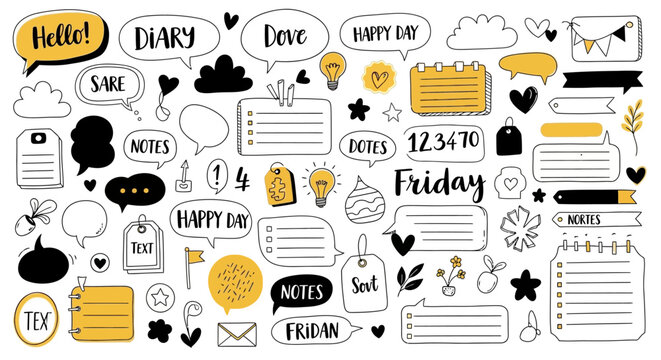 Hello!
DiARY
Dove
HAPPY DAY
SARE
NOTES
DOTES
123470
! 4
Friday
HAPPY DAY
TEXT
NORTES
Sovt
NOTES
TEX
FRiDAN